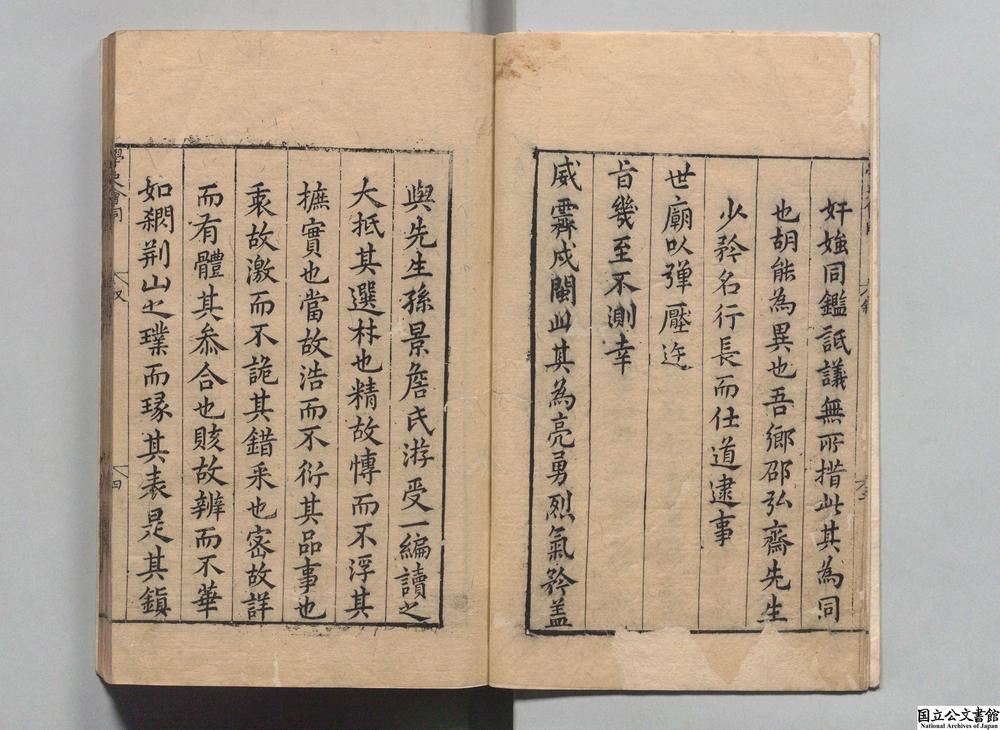 奸媸同鑑詆議無所措此其為同
也胡能為異也吾鄉邵弘齋先生
少矜名行長而仕道逮事
世廟以彈壓迕
旨幾至不測幸
威霽戍閩此其為亮勇烈氣矜盖
與先生孫景詹氏游受一編讀之
大抵其選材也精故慱而不浮其
摭實也當故浩而不衍其品事也
衷故激而不詭其錯采也密故詳
而有體其叅合也賅故辨而不華
如剟荆山之璞而琢其表是其鎮
學史會同
叙
四
国立公文書館
National Archives of Japan